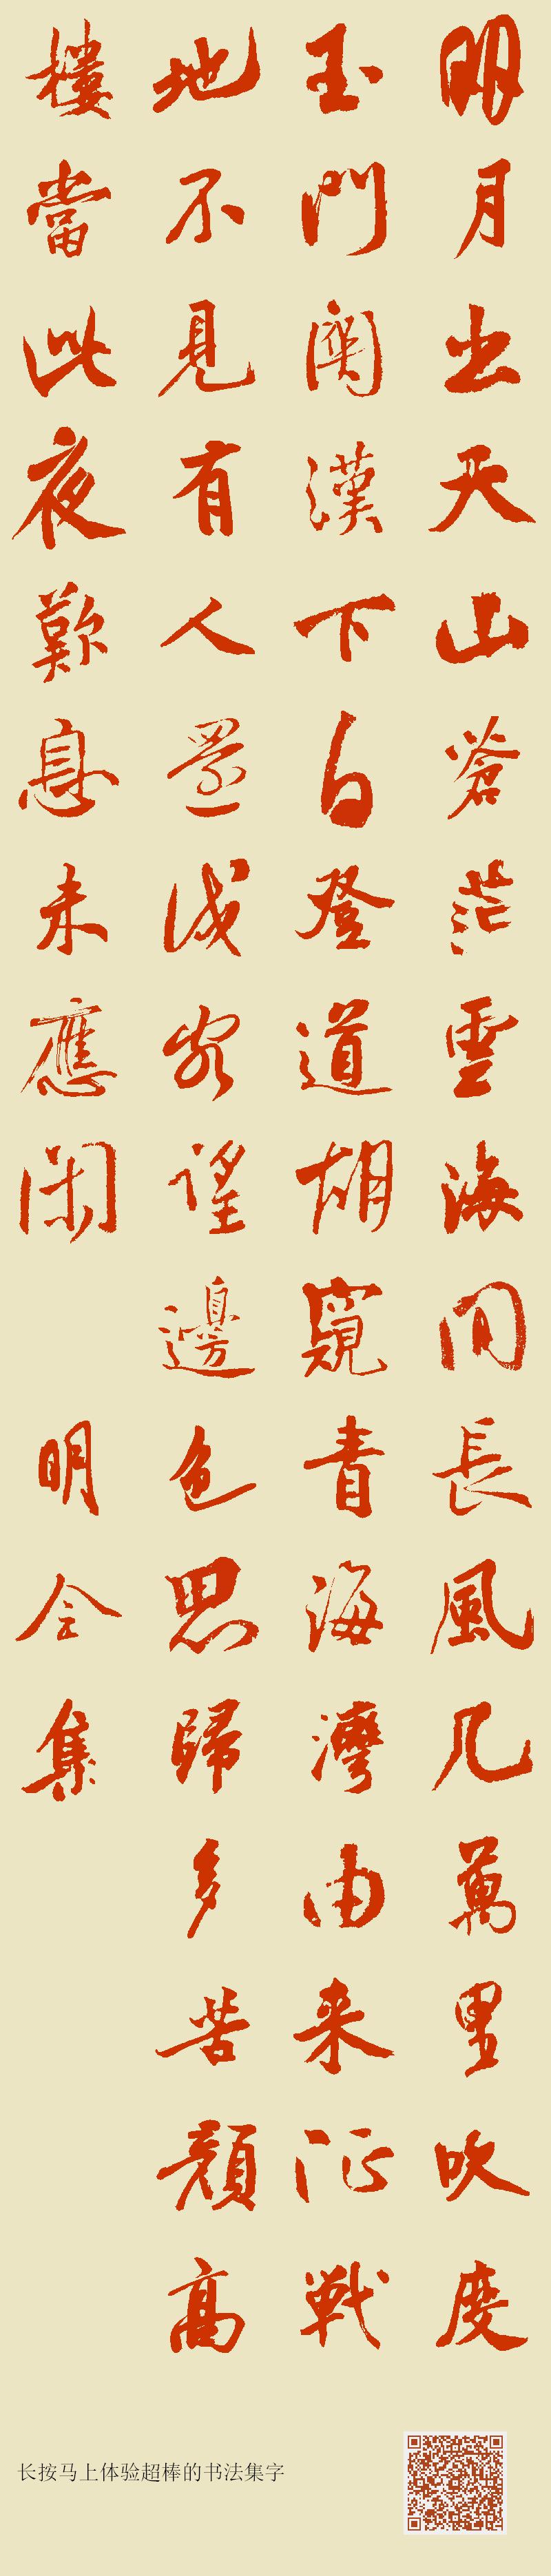 明月出天山蒼茫雲海間長風几萬里吹度
玉門關漢下白登道胡窺青海灣由来征戰
地不見有人還戍客望邊色思歸多苦顏高
樓當此夜歎息未應閑 明会集
长按马上体验超棒的书法集字